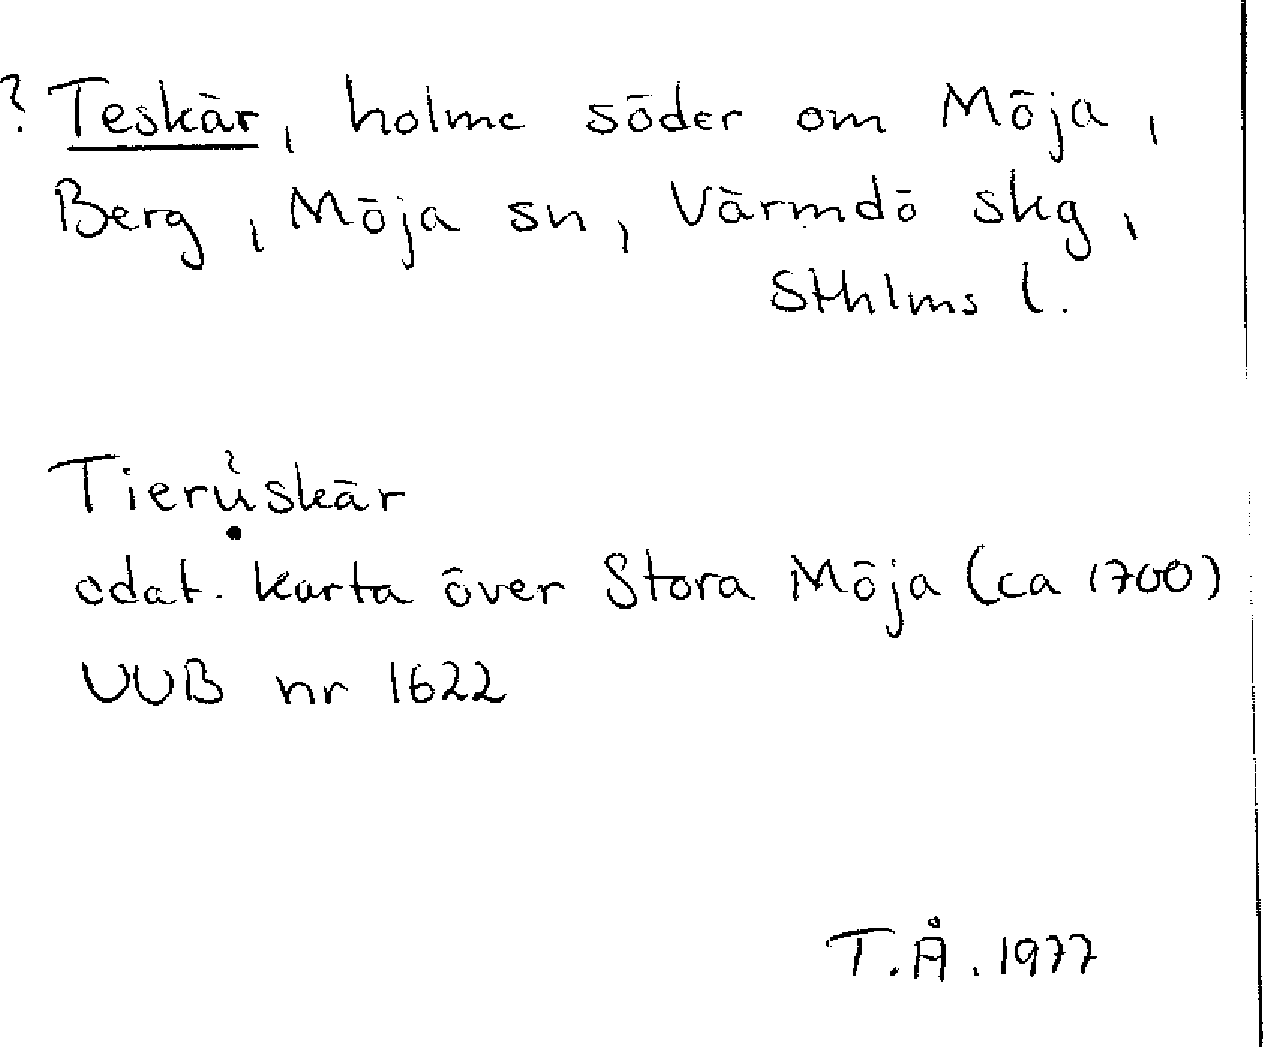 ? Teskär, holme söder om Möja,
Berg, Möja sn, Värmdö skg,
Sthlms l.
Tieruskär
odat. karta över Stora Möja (ca 1700)
UUB nr 1622
T.Å. 1977